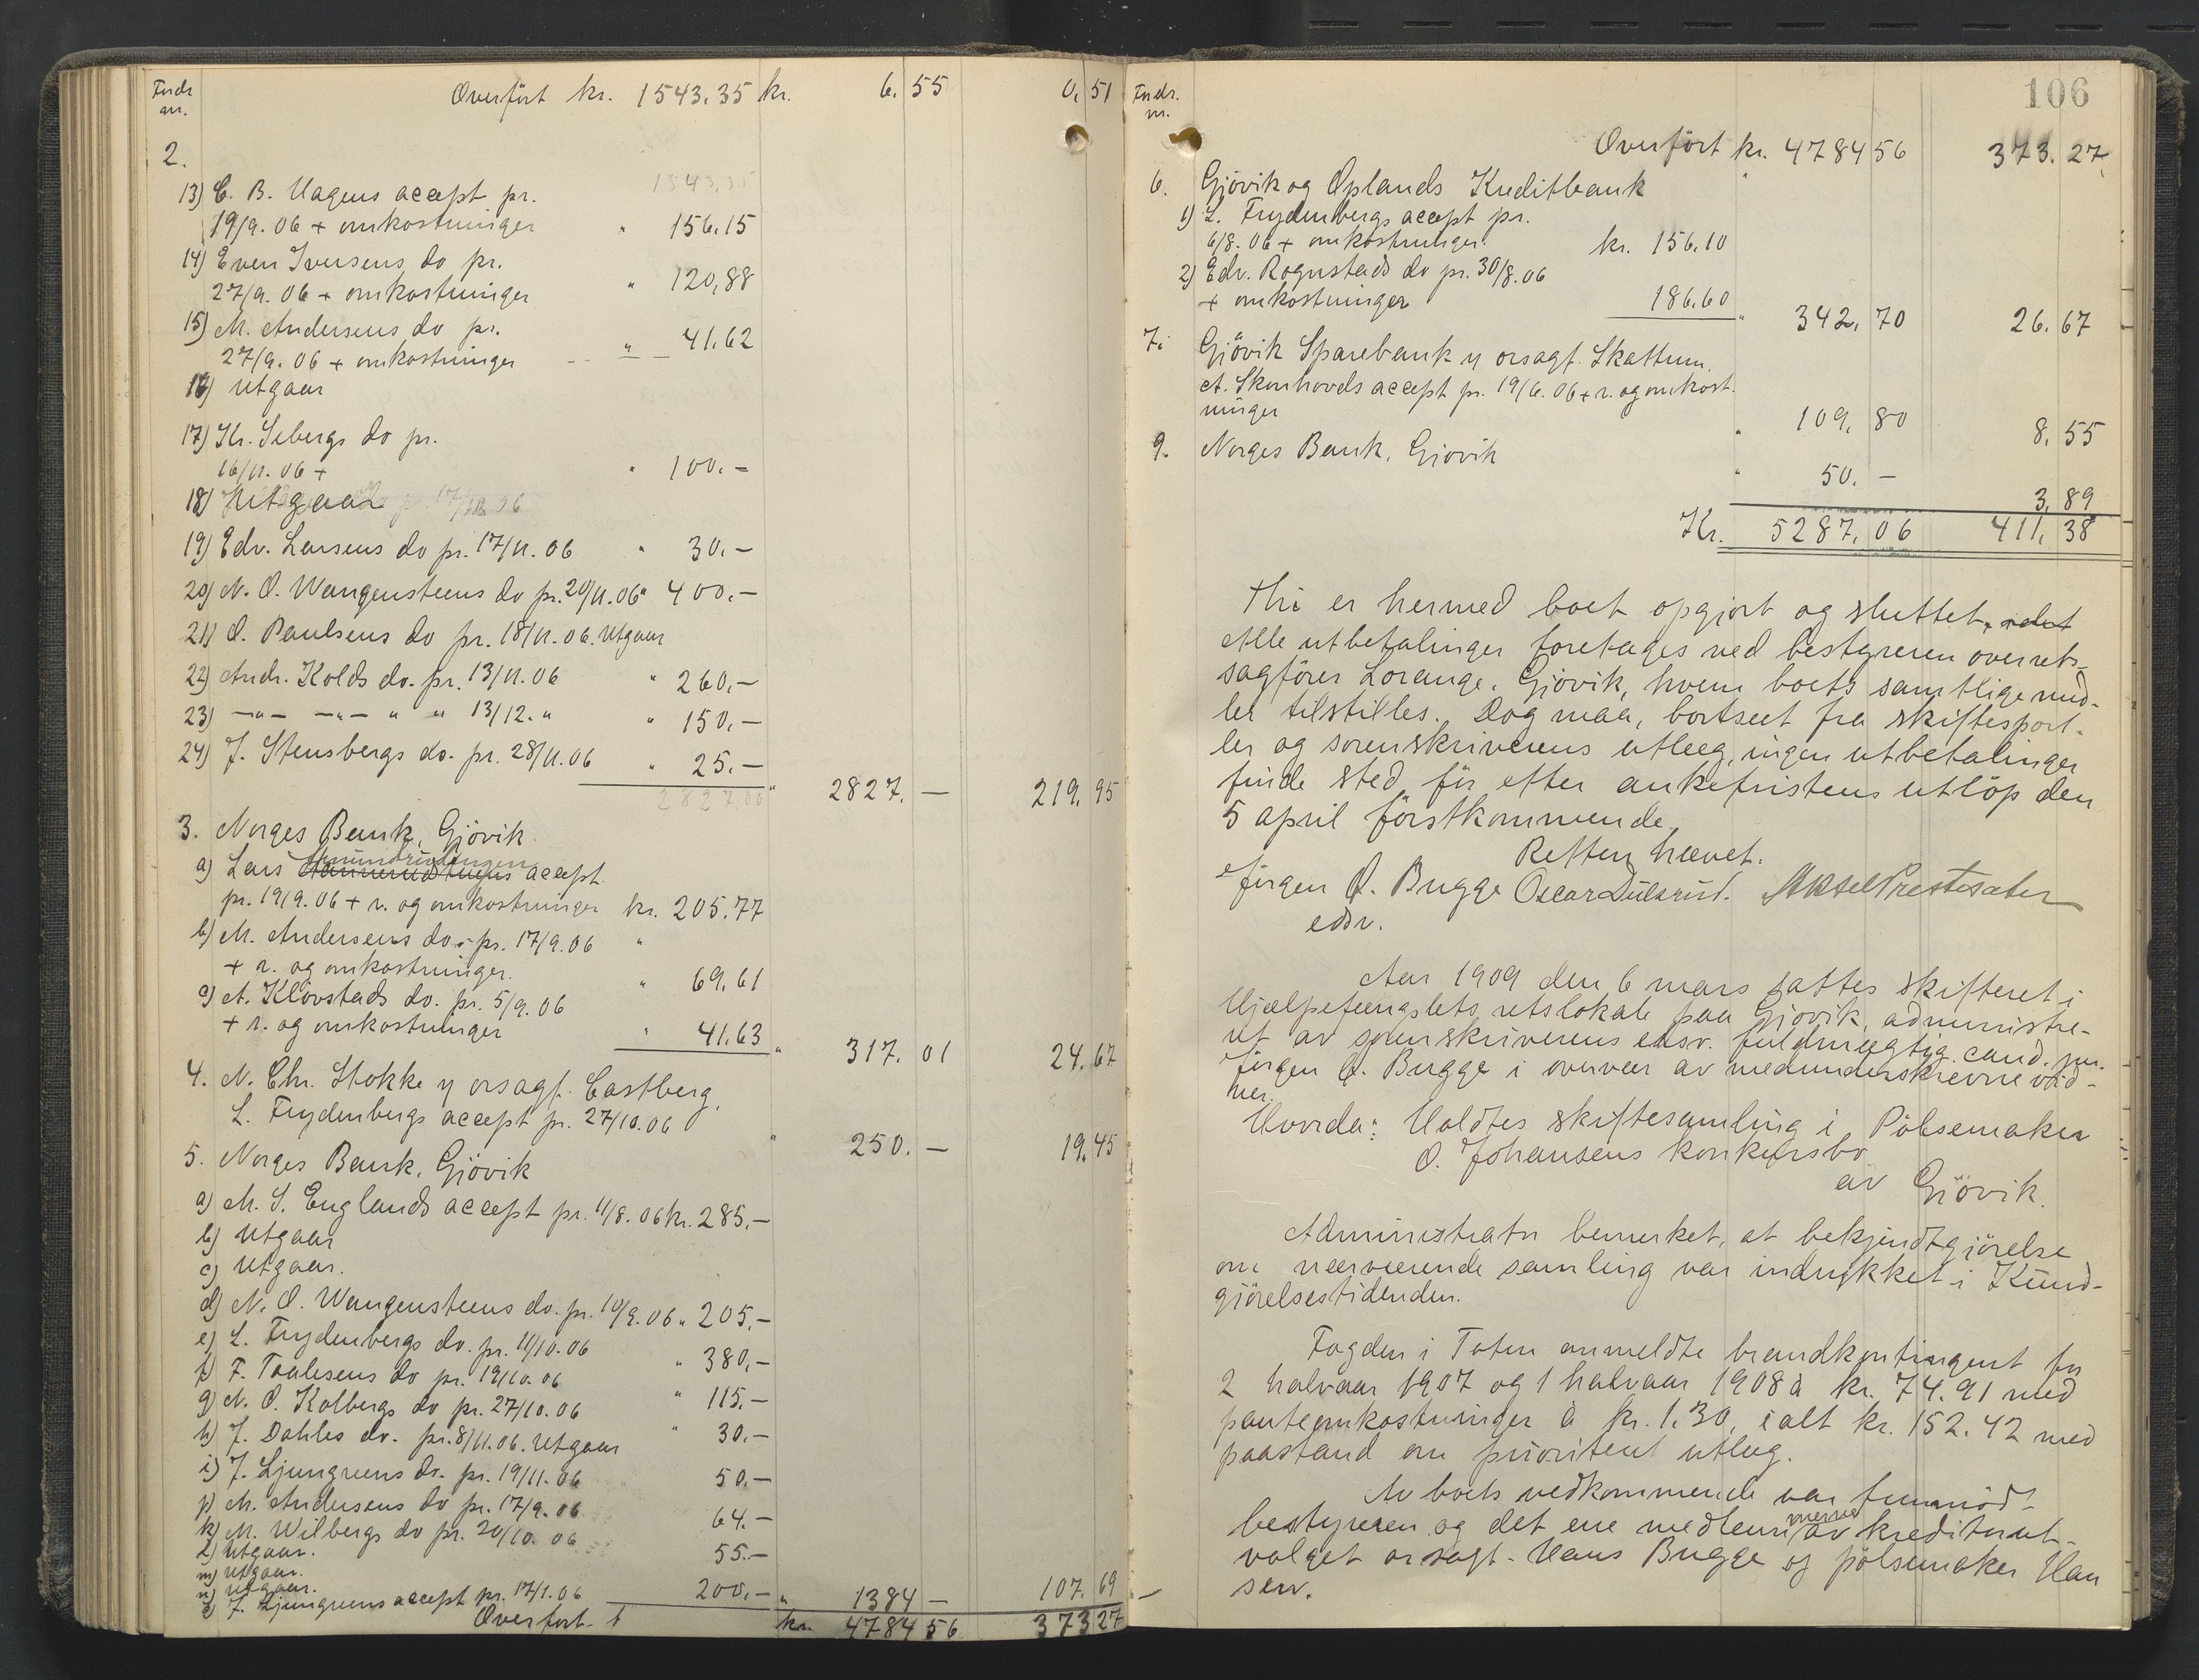 Fndr. nr. Overført kr. 1543.35 kr. 6.55 0.51
2.
13) C. B. Hagens accept pr.
19/9. 06 + omkostninger " 156.15
14) Even Iversens do pr.
27/9. 06 + omkostninger " 120,88
15) M. Andersens do pr.
27/9. 06 + omkostninger " 41.62
16) utgaar
17) Kr. Sebergs do pr.
16/11. 06 + " 100.-
18) Utgaar
19) Edv. Larsens do pr. 17/11. 06 " 30.-
20) N. O. Wangensteens do pr. 20/11. 06 " 400.-
21) O. Paulsens do pr. 18/11. 06. utgaar
22) Andr. Kolds do. pr. 13/11. 06 " 260.-
23) -"- -"- " " 13/12. " " 150.-
24) J. Stensbergs do. pr. 28/11. 06 " 25.-
" 2827.- 219.95
3. Norges Bank, Gjövik
a) Lars accept
pr. 19/9. 06 + r. og omkostninger kr. 205.77
b) M. Andersens do. pr. 17/9. 06 "
+ r. og omkostninger. " 69.61
c) A. Klövstads do. pr. 5/9. 06
+ r. og omkostninger " 41.63 " 317.01 24.67
4. N. Chr. Stokke v orsagf. Castberg,
L. Frydenbergs accept pr. 27/10. 06 " 250.- 19.45
5. Norges Bank, Gjövik
a) M. S. Englands accept pr. 11/8. 06 kr. 285.-
b) utgaar
c) utgaar.
d) N. O. Wangensteens do. pr. 10/9. 06 " 205.-
e) L. Frydenbergs do. pr. 11/10. 06 " 380,-
f) F. Paalesens do pr. 19/10. 06 " 115.-
g) N. O. Kolbergs do pr. 27/10. 06 " 30.-
h) J. Dahles do. pr. 8/11. 06. utgaar
i) J. Ljungreens do. pr. 19/11. 06 50.-
j) M. Andersens do pr. 17/9. 06 64.-
k) M. Wilbergs do pr. 20/10. 06 55.-
l) utgaar.
m) utgaar.
n) utgaar.
o) J. Ljungreens accept pr. 17/1. 06 200.- " 1384 - 107.69
Overført kr. 4784 56 373 27
106
Fndr. nr.
Overført kr. 4784 56 373.27
6. Gjövik og Oplands Kreditbank
1) L. Frydenbergs accept pr.
6/8. 06 + omkostninger. kr. 156.10
2) Edv. Rognstads do pr. 30/8. 06
+ omkostninger 186.60 " 342.70 26.67
7. Gjövik Sparebank v orsagf. Skattum,
A. Skonhovds accept pr. 19/6. 06 + r. og omkost-
ninger " 109.80 8.55
9. Norges Bank, Gjøvik " 50.- 3.89
Kr. 5287.06 411.38
Thi er hermed boet opgjort og sluttet, idet
Alle utbetalinger foretages ved bestyreren overrets-
sagförer Lorange, Gjövik, hvem boets samtlige mid-
ler tilstilles. Dog maa, bortseet fra skiftesport-
ler og sorenskriverens utlæg, ingen utbetalinger
finde sted för efter ankefristens utlöp den
5 april förstkommende.
Retten hævet.
Jörgen O. Bugge Oscar Dulsrud. Aksel Prestesæter
edsv.
Aar 1909 den 6 mars sattes skifteret i
Hjælpefængslets retslokale paa Gjövik, administre-
ret av sorenskriverens edsv. fuldmægtig cand. jur.
Jörgen O. Bugge i overvær av medunderskrevne vid-
ner.
Hvorda: Holdtes skiftesamling i Pölsemaker
O. Johansens konkursbo
av Gjövik.
Administrator bemerket, at bekjendtgjörelse
om nærværende samling var indrykket i Kund-
gjörelsestidenden.
Fogden i Toten anmeldte brandkontingent for
2 halvaar 1907 og 1 halvaar 1908 à kr. 74.91 med
panteomkostninger à kr. 1.30, ialt kr. 152.42 med
paastand om prioritert utlæg.
Av boets vedkommende var fremmöd-
bestyreren og det ene medlem av kreditorut-
valget orsagf. Hans Bugge og pölsemaker Han
sen.